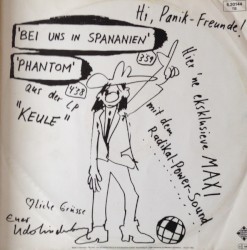 Hi, Panik-Freunde!
'BEI UNS IN SPANANIEN'
3:59
'PHANTOM'
4:38
aus der LP
"KEULE"
Hier 'ne eksklusieve MAXI
mit dem
Radikal-Power-Sound
♡liche Grüsse
Euer
Udo Lindenberg